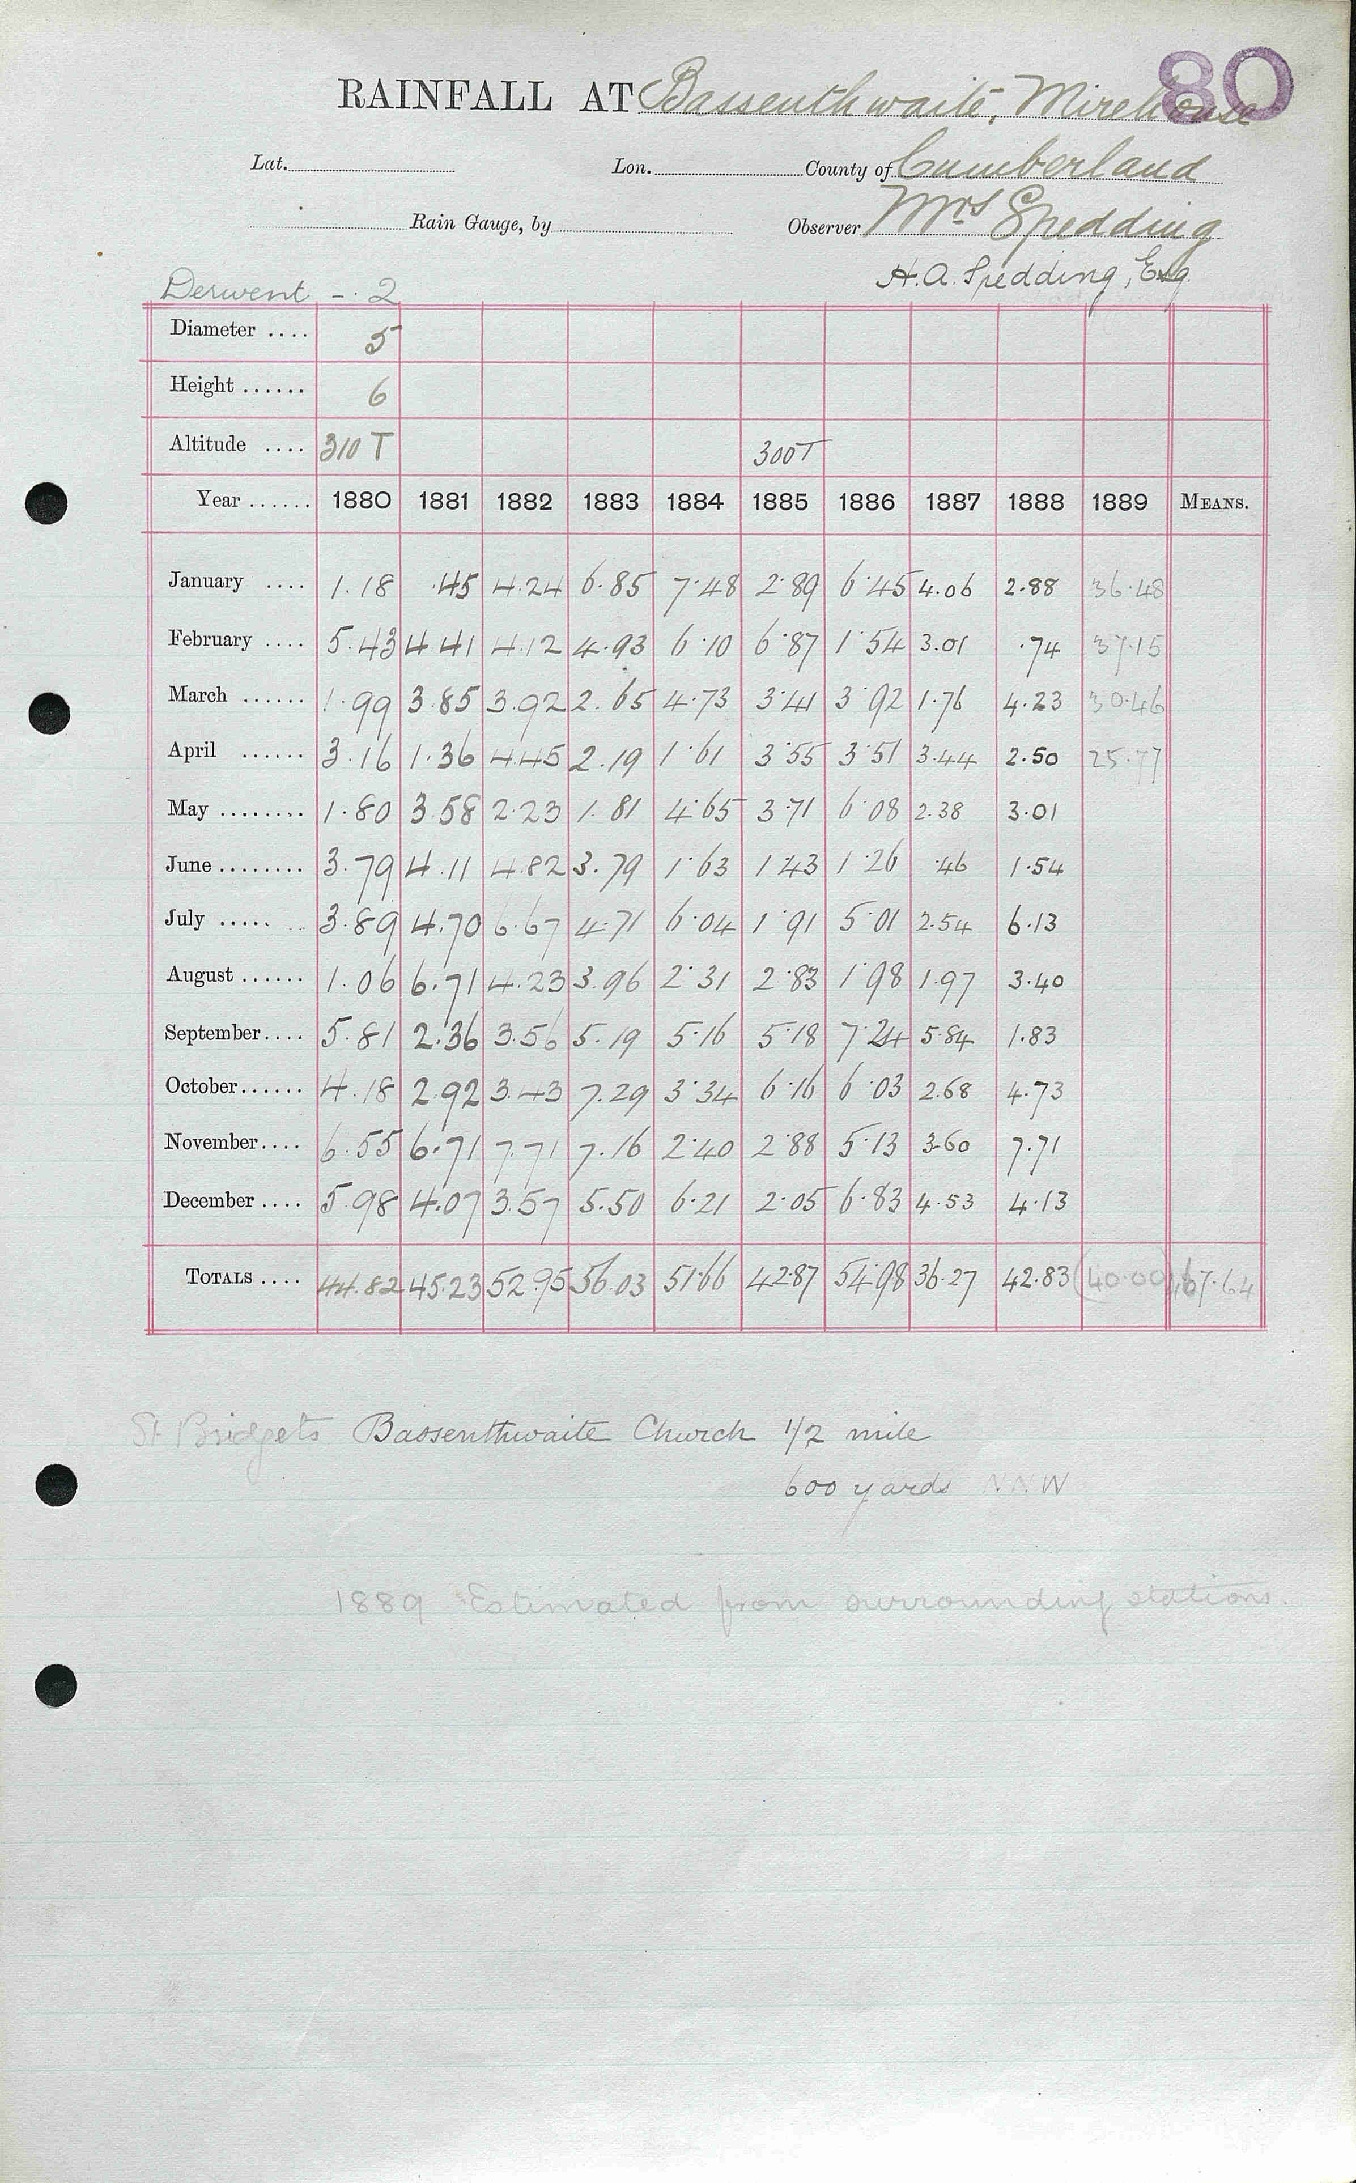 80
RAINFALL AT Bassenthwaite, Mirehouse
Lat. Lon. County of Cumberland
Rain Gauge, by Observer Mrs Spedding
H.A. Spedding, Esq
Derwent - 2
Diameter .... 5
Height ...... 6
Altitude .... 310 T 300T
Year ...... 1880 1881 1882 1883 1884 1885 1886 1887 1888 1889 MEANS.
January .... 1.18 .45 4.24 6.85 7.48 2.89 6.45 4.06 2.88 36.48
February .... 5.43 4.41 4.12 4.93 6.10 6.87 1.54 3.01 .74 37.15
March ...... 1.99 3.85 3.92 2.65 4.73 3.41 3.92 1.76 4.23 30.46
April ...... 3.16 1.36 4.45 2.19 1.61 3.55 3.51 3.44 2.50 25.77
May ........ 1.80 3.58 2.23 1.81 4.65 3.71 6.08 2.38 3.01
June ........ 3.79 4.11 4.82 3.79 1.63 1.43 1.26 .46 1.54
July ..... 3.89 4.70 6.67 4.71 6.04 1.91 5.01 2.54 6.13
August ...... 1.06 6.71 4.23 3.96 2.31 2.83 1.98 1.97 3.40
September .... 5.81 2.36 3.56 5.19 5.16 5.18 7.24 5.84 1.83
October ...... 4.18 2.92 3.43 7.29 3.34 6.16 6.03 2.68 4.73
November .... 6.55 6.71 7.71 7.16 2.40 2.88 5.13 3.60 7.71
December .... 5.98 4.07 3.57 5.50 6.21 2.05 6.83 4.53 4.13
TOTALS .... 44.82 45.23 52.95 56.03 51.66 42.87 54.98 36.27 42.83 (40.00) 467.64
St Bridgets Bassenthwaite Church 1/2 mile
600 yards NNW
1889 Estimated from surrounding stations.